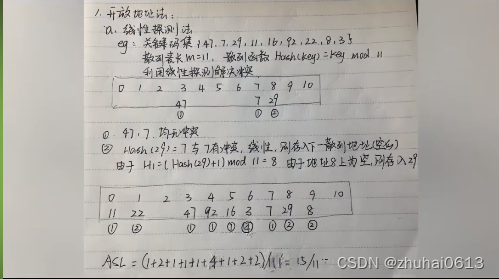 1. 开放地址法:
a. 线性探测法
eg: 关键码集{47,7,29,11,16,92,22,8,3}
散列表长m=11, 散列函数 Hash(key)=key mod 11
利用线性探测解决冲突
0 1 2 3 4 5 6 7 8 9 10
47 7 29
① ① ②
① 47,7.均无冲突
② Hash(29)=7 与7有冲突,线性,则存入下一散列地址
由于 H1=(Hash(29)+1) mod 11=8 由于地址8上为空,则存入29
0 1 2 3 4 5 6 7 8 9 10
11 22 47 92 16 3 7 29 8
① ② ① ① ① ④ ① ② ②
ASL=(1+2+1+1+1+4+1+2+2)/ = 15/11
CSDN @zhuhai0613